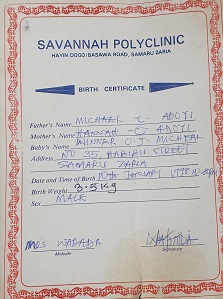 SAVANNAH POLYCLINIC
HAYIN DOGO/BASAWA ROAD, SAMARU ZARIA
BIRTH CERTIFICATE
Father's Name MICHAEL -C- ADOTI
Mother's Name HANNAH -O- ADOTI
Baby's Name WINNER O-J MICHEAL
Address NO 35, HABIBU STREET
SAMARU ZARIA
Date and Time of Birth 10th JANUARY 1998
Birth Weight 3.5kg
Sex MALE
MRS
Midwife
Signature